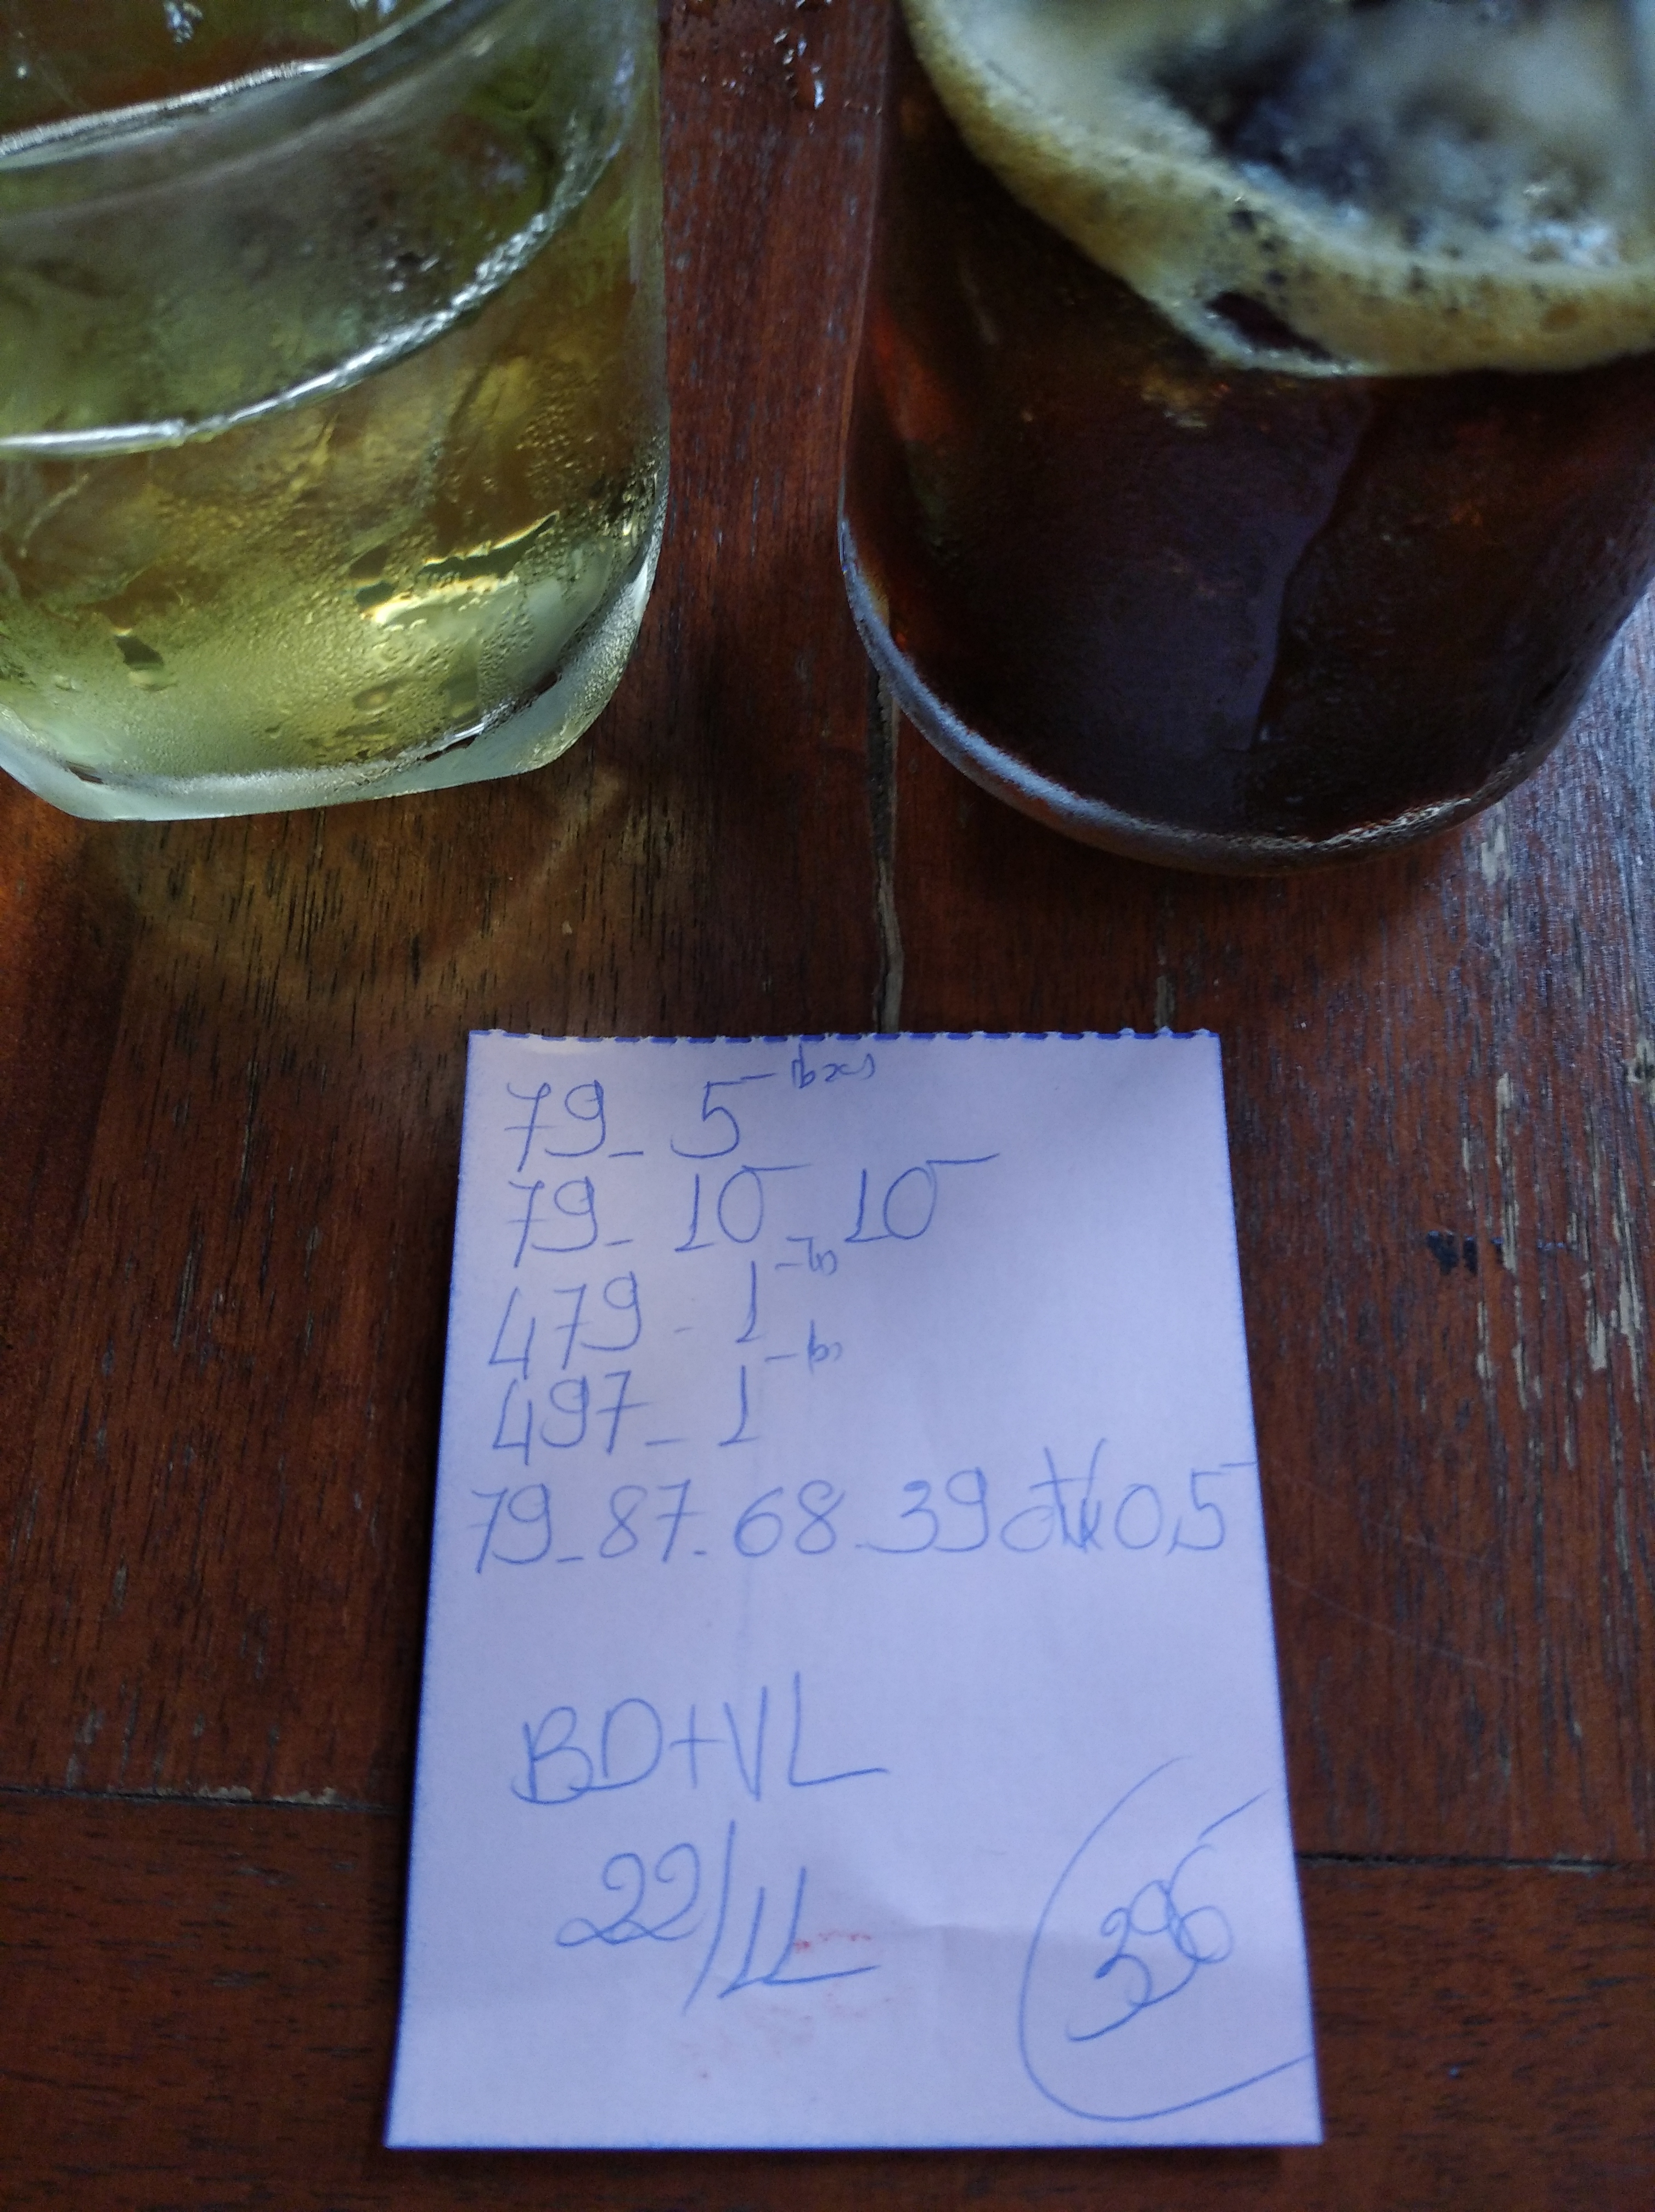 79_ 5
79_ 10_10
479 - 1
497_ 1
79_87_68_39 đVx 0,5
BD+VL
22/11
396